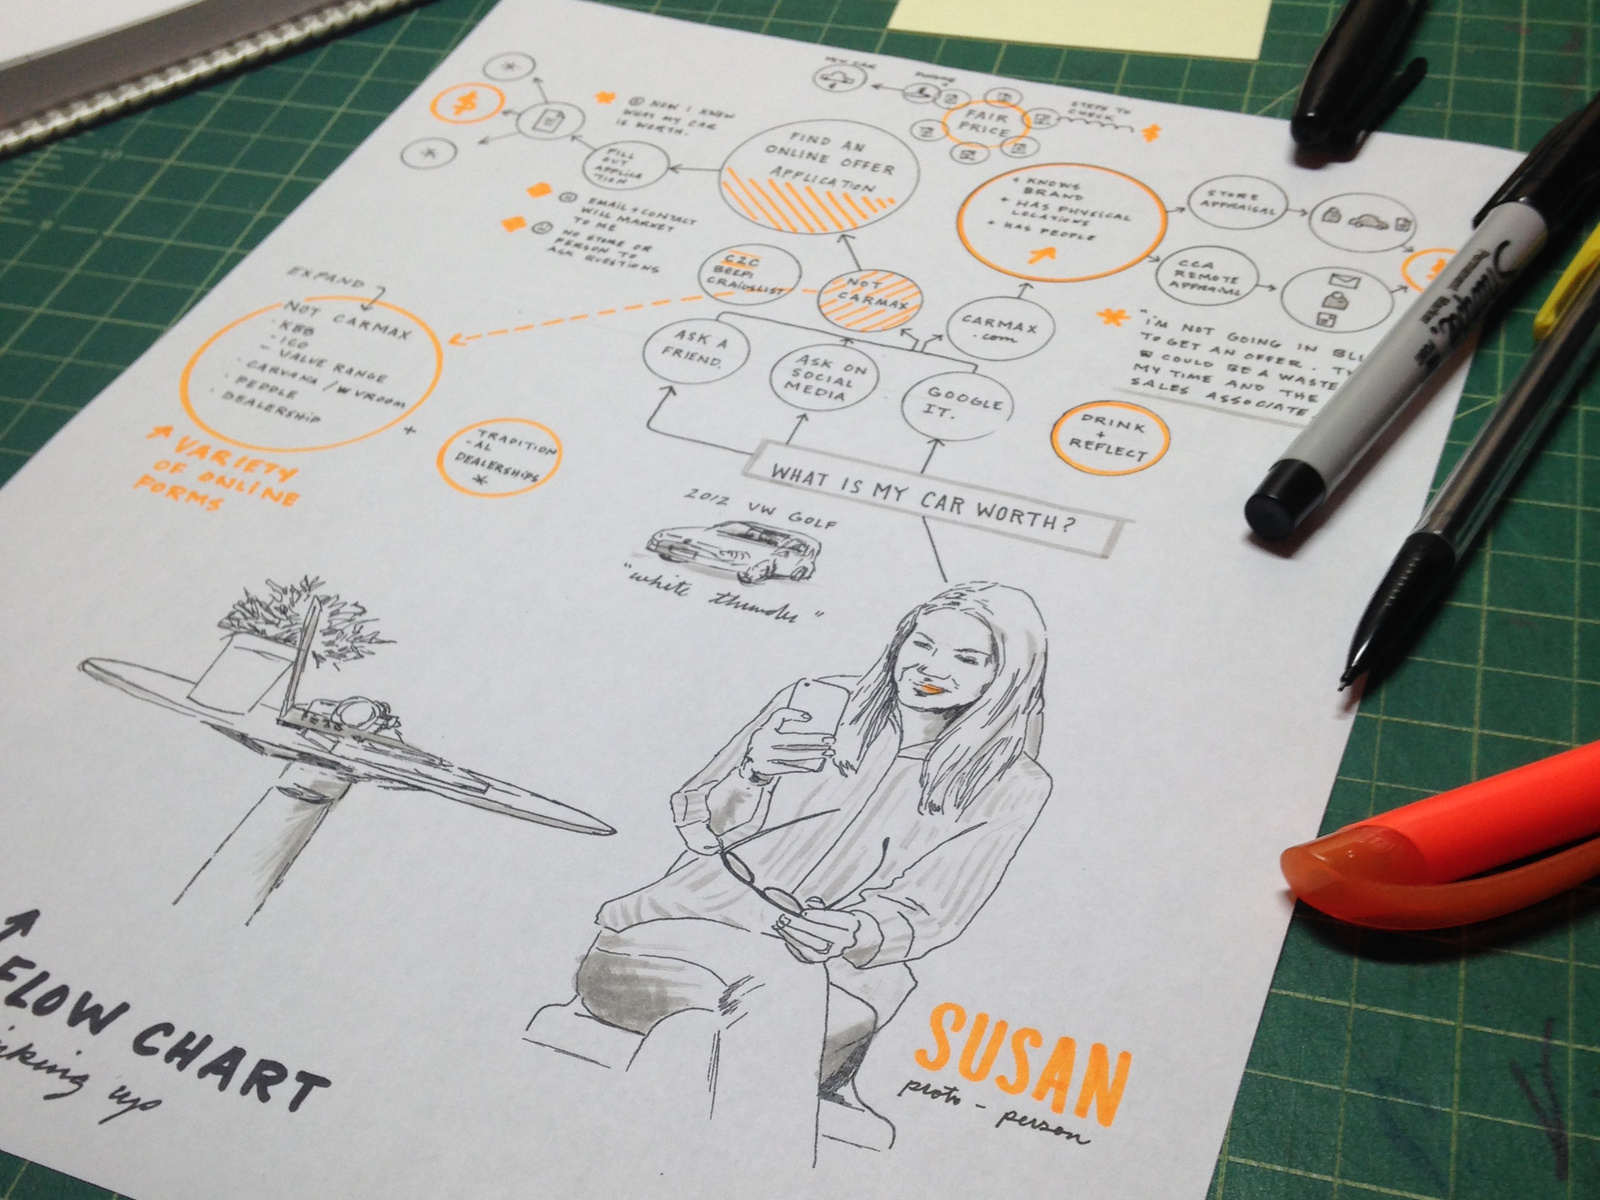 MY CAR
FAIR
PRICE
STEPS TO
CHECK
$
$
NOW I KNOW
WHAT MY CAR
IS WORTH.
FILL
OUT
APPLICA
TION
FIND AN
ONLINE OFFER
APPLICATION
+ KNOWS
BRAND
+ HAS PHYSICAL
LOCATIONS
+ HAS PEOPLE
STORE
APPRAISAL
CCA
REMOTE
APPRAISAL
EMAIL + CONTACT
WILL MARKET
TO ME
NO STORE OR
PERSON TO
ASK QUESTIONS
C2C
BEEPI
CRAIGSLIST
NOT
CARMAX
CARMAX
.com
"I'M NOT GOING IN
TO GET AN OFFER.
COULD BE A WASTE
MY TIME AND THE
SALES ASSOCIATE.
EXPAND
NOT CARMAX
- KBB
- ICO
- VALUE RANGE
- CARVANA / VROOM
- PEDDLE
- DEALERSHIP
VARIETY
OF ONLINE
FORMS
+
TRADITION
-AL
DEALERSHIPS
ASK A
FRIEND.
ASK ON
SOCIAL
MEDIA
GOOGLE
IT.
DRINK
+
REFLECT
WHAT IS MY CAR WORTH?
2012 VW GOLF
"white thunder"
FLOW CHART
up
SUSAN
proto - person
Sharpie